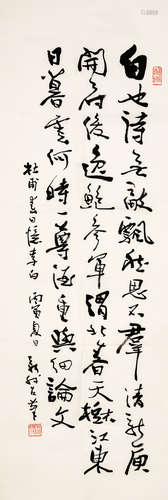 白也詩無敵飄然思不羣清新庾
開府俊逸鮑參軍渭北春天樹江東
日暮雲何時一尊酒重與細論文
杜甫春日憶李白 丙寅夏日